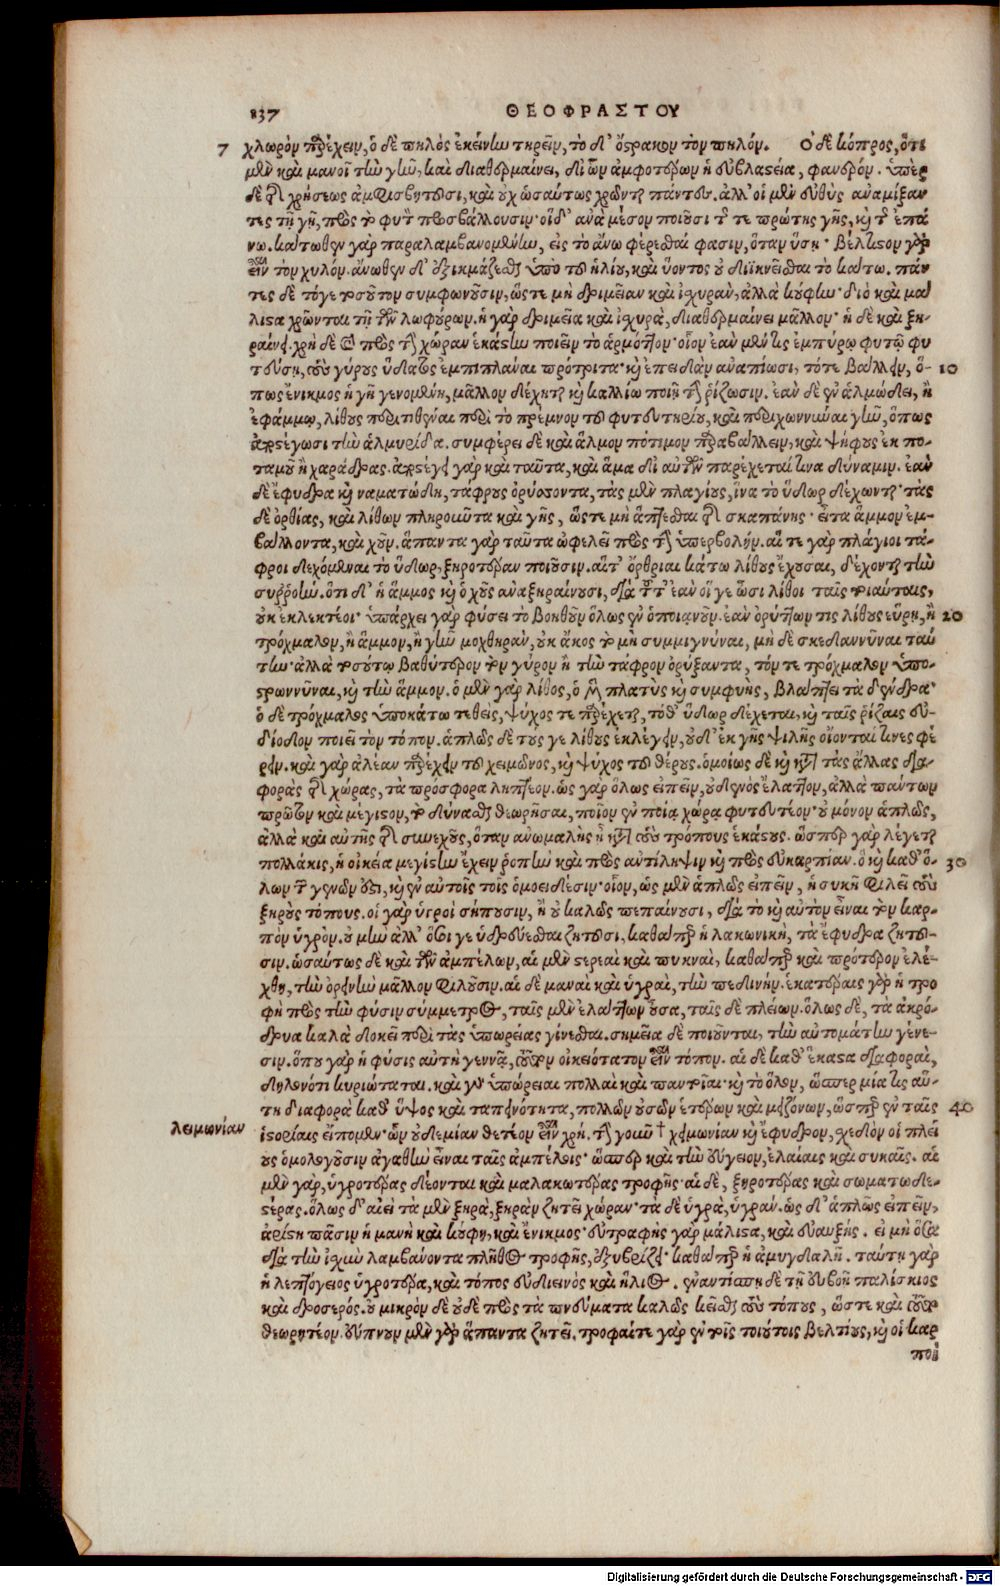 137 ΘΕΟΦΡΑΣΤΟΥ
7 χλωρὸν παρέχειν, ὁ δὲ πηλὸς ἐκείνην τηρεῖν, τὸ δ' ὄστρακον τὸν πηλόν. Ὁ δὲ κόπρος, ὅτι
μὲν καὶ μανοῖ τὴν γῆν, καὶ διαθερμαίνει, δι' ὧν ἀμφοτέρων ἡ εὐβλαστεία, φανερόν. ὑπὲρ
δὲ τῆς χρήσεως ἀμφισβητοῦσι, καὶ οὐχ ὡσαύτως χρῶνται πάντες. ἀλλ' οἱ μὲν εὐθὺς ἀναμίξαν
τες τῇ γῇ, πρὸς τὸ φυτὸν προσβάλλουσιν· οἱ δ' ἀνὰ μέσον ποιοῦσι τῆς τε πρώτης γῆς, καὶ τῆς ἐπά
νω. κάτωθεν γὰρ παραλαμβανομένην, εἰς τὸ ἄνω φέρεσθαί φασιν, ὅταν ὕσῃ· βέλτιστον γὰρ
εἶναι τὸν χυλόν. ἄνωθεν δ' ἐξικμάζεσθαι ὑπὸ τοῦ ἡλίου, καὶ ὕοντος οὐ διϊκνεῖσθαι τὸ κάτω. πάν
τες δὲ τόγε τοσοῦτον συμφωνοῦσιν, ὥστε μὴ δριμεῖαν καὶ ἰσχυρὰν, ἀλλὰ κούφην· διὸ καὶ μά
λιστα χρῶνται τῇ τῶν λωφύρων. ἡ γὰρ δριμεῖα καὶ ἰσχυρὰ, διαθερμαίνει μᾶλλον· ἡ δὲ καὶ ξη-
ραίνει. χρὴ δὲ καὶ πρὸς τὴν χώραν ἑκάστην ποιεῖν τὸ ἁρμόττον· οἷον ἐὰν μὲν τις ἐμπύρῳ φυτῷ φυ
τεύσῃ, τοὺς γύρους ὕδατος ἐμπιπλάναι πρότριτα· καὶ ἐπειδὰν ἀναπίωσι, τότε βάλλειν, ὅ- 10
πως ἔνικμος ἡ γῆ γενομένη, μᾶλλον δέχηται καὶ καλλίω ποιῇ τὴν ῥίζωσιν. ἐὰν δὲ ἐν ἁλμώδει, ἢ
ἐφάμμῳ, λίθους περιτιθέναι περὶ τὸ πρέμνον τοῦ φυτευτηρίου, καὶ περιχωννύναι γῆν, ὅπως
ἀποστέγωσι τὴν ἁλμυρίδα. συμφέρει δὲ καὶ ἅλμον πότιμον παραβάλλειν, καὶ ψήφους ἐκ πο-
ταμοῦ ἢ χαράδρας. ἀποστέγει γὰρ καὶ ταῦτα, καὶ ἅμα δι' αὐτῶν παρέχεταί τινα δύναμιν. ἐὰν
δὲ ἔφυδρα καὶ ναματώδη, τάφρους ὀρύσσοντα, τὰς μὲν πλαγίους, ἵνα τὸ ὕδωρ δέχωνται· τὰς
δὲ ὀρθίας, καὶ λίθων πληροῦντα καὶ γῆς, ὥστε μὴ ἅπτεσθαι τῆς σκαπάνης· εἶτα ἄμμον ἐμ-
βάλλοντα, καὶ χοῦν. ἅπαντα γὰρ ταῦτα ὠφελεῖ πρὸς τὴν ὑπερβολήν. αἵ τε γὰρ πλάγιοι τά-
φροι δεχόμεναι τὸ ὕδωρ, ξηροτέραν ποιοῦσιν. αἵτ' ὄρθριαι κάτω λίθους ἔχουσαι, δέχονται τὴν
συῤῥοήν. ὅτι δ' ἡ ἄμμος καὶ ὁ χοῦς ἀναξηραίνουσι, διὰ τοῦτ' ἐὰν οἵ γε ὦσι λίθοι ταῖς τοιαύταις,
οὐκ ἐκλεκτέοι· ὑπάρχει γὰρ φύσει τὸ βοηθοῦν ὅλως ἐν ὁποιᾳνοῦν. ἐὰν ὀρύττων τις λίθους εὕρῃ, ἢ 20
τρόχμαλον, ἢ ἄμμον, ἢ γῆν μοχθηρὰν, οὐκ ἄκος τὸ μὴ συμμιγνύναι, μὴ δὲ σκεδαννῦναι ταύ
την· ἀλλὰ τοσούτῳ βαθύτερον τὸν γύρον ἢ τὴν τάφρον ὀρύξαντα, τόν τε τρόχμαλον ὑπο-
στρωννῦναι, καὶ τὴν ἄμμον. ὁ μὲν γὰρ λίθος, ὁ μὲν πλατὺς καὶ συμφυής, βλάπτει τὰ δένδρα·
ὁ δὲ τρόχμαλος ὑποκάτω τεθεὶς, ψύχος τε παρέχεται, τόθ' ὕδωρ δέχεται, καὶ ταῖς ῥίζαις εὐ-
δίοδον ποιεῖ τὸν τόπον. ἁπλῶς δὲ τούς γε λίθους ἐκλέγειν, οὐδ' ἐκ γῆς ψιλῆς οἴονταί τινες φέ
ρειν. καὶ γὰρ ἀλέαν παρέχειν τοῦ χειμῶνος, καὶ ψύχος τοῦ θέρους. ὁμοίως δὲ καὶ κατὰ τὰς ἄλλας δια
φορὰς τῆς χώρας, τὰ πρόσφορα ληπτέον. ὡς γὰρ ὅλως εἰπεῖν, οὐδενὸς ἔλαττον, ἀλλὰ πάντων
πρῶτον καὶ μέγιστον, τὸ δύνασθαι θεωρῆσαι, ποῖον ἐν ποίᾳ χώρᾳ φυτευτέον· οὐ μόνον ἁπλῶς,
ἀλλὰ καὶ αὐτῆς τῆς συνεχοῦς, ὅταν ἀνωμαλὴς ᾖ κατὰ τοὺς τρόπους ἑκάστους. ὥσπερ γὰρ λέγεται
πολλάκις, ἡ οἰκεία μεγίστην ἔχειν ῥοπὴν καὶ πρὸς ἀντίληψιν καὶ πρὸς εὐκαρπίαν. ὃ καὶ καθ' ὅ- 30
λων τῶν γενῶν ἐστι, καὶ ἐν αὐτοῖς τοῖς ὁμοειδέσιν· οἷον, ὡς μὲν ἁπλῶς εἰπεῖν, ἡ συκῆ φιλεῖ τοὺς
ξηροὺς τόπους. οἱ γὰρ ὑγροὶ σήπουσιν, ἢ οὐ καλῶς πεπαίνουσι, διὰ τὸ καὶ αὐτὸν εἶναι τὸν καρ-
πὸν ὑγρόν. οὐ μὴν ἀλλ' ἔνιαί γε ὑδρεύεσθαι ζητοῦσι, καθάπερ ἡ λακωνικὴ, τὰ ἔφυδρα ζητοῦ-
σιν. ὡσαύτως δὲ καὶ τῶν ἀμπέλων, αἱ μὲν στερεαὶ καὶ πυκναὶ, καθάπερ καὶ πρότερον ἐλέ-
χθη, τὴν ὀρεινὴν μᾶλλον φιλοῦσιν. αἱ δὲ μαναὶ καὶ ὑγραὶ, τὴν πεδινήν. ἑκατέραις γὰρ ἡ τρο
φὴ πρὸς τὴν φύσιν σύμμετρος, ταῖς μὲν ἐλάττων οὖσα, ταῖς δὲ πλείων. ὅλως δὲ, τὰ ἀκρό-
δρυα καλὰ δοκεῖ περὶ τὰς ὑπωρείας γίνεσθαι. σημεῖα δὲ ποιοῦνται, τὴν αὐτομάτην γένε-
σιν. ὅπου γὰρ ἡ φύσις αὐτὴ γεννᾷ, τοῦτον οἰκειότατον εἶναι τόπον. αἱ δὲ καθ' ἕκαστα διαφοραὶ,
δηλονότι κυριώταται. καὶ γὰρ ὑπώρειαι πολλαὶ καὶ παντοῖαι· καὶ τὸ ὅλον, ὥσπερ μία τις αὕ-
τη διαφορὰ καθ' ὕψος καὶ ταπεινότητα, πολλῶν οὐσῶν ἑτέρων καὶ μειζόνων, ὥσπερ ἐν ταῖς 40
λειμωνίαν ἱστορίαις εἴπομεν· ὧν οὐδεμίαν θετέον εἶναι χρή. τὴν γοῦν † χειμωνίαν καὶ ἔφυδρον, σχεδὸν οἱ πλεῖ
ους ὁμολογοῦσιν ἀγαθὴν εἶναι ταῖς ἀμπέλοις· ὥσπερ καὶ τὴν εὔγειον, ἐλαίαις καὶ συκαῖς. αἱ
μὲν γὰρ, ὑγροτέρας δέονται καὶ μαλακωτέρας τροφῆς· αἱ δὲ, ξηροτέρας καὶ σωματωδε-
στέρας. ὅλως δ' αἰεὶ τὰ μὲν ξηρὰ, ξηρὰν ζητεῖ χώραν· τὰ δὲ ὑγρὰ, ὑγράν. ὡς δ' ἁπλῶς εἰπεῖν,
ἀρίστη πᾶσιν ἡ μανὴ καὶ κούφη, καὶ ἔνικμος· εὐτραφὴς γὰρ μάλιστα, καὶ εὐαυξής. εἰ μὴ ὅσα
διὰ τὴν ἰσχὺν λαμβάνοντα πλῆθος τροφῆς, ἐξυβρίζει· καθάπερ ἡ ἀμυγδαλῆ. ταύτῃ γὰρ
ἡ λεπτόγειος ὑγροτέρα, καὶ τόπος εὐδιεινὸς καὶ ἥλιος. ἐναντίως δὲ τῇ εὐβοῇ παλίσκιος
καὶ δροσερός. οὐ μικρὸν δὲ οὐδὲ πρὸς τὰ πνεύματα καλῶς κεῖσθαι τοὺς τόπους, ὥστε καὶ τοῦτο
θεωρητέον. εὔπνουν μὲν γὰρ ἅπαντα ζητεῖ. τροφαίτε γὰρ ἐν τοῖς τοιούτοις βελτίους, καὶ οἱ καρ
ποὶ